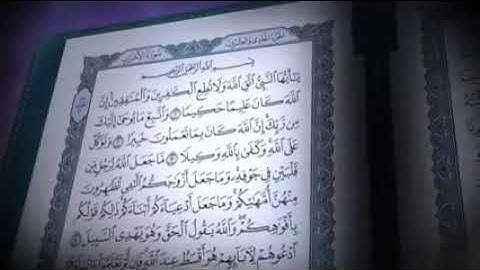 الجزء الحادي والعشرون
سورة الأحزاب
بسم الله الرحمن الرحيم
يَٰٓأَيُّهَا ٱلنَّبِيُّ ٱتَّقِ ٱللَّهَ وَلَا تُطِعِ ٱلْكَٰفِرِينَ وَٱلْمُنَٰفِقِينَ إِنَّ
ٱللَّهَ كَانَ عَلِيمًا حَكِيمًا ١ وَٱتَّبِعْ مَا يُوحَىٰٓ إِلَيْكَ
مِن رَّبِّكَ إِنَّ ٱللَّهَ كَانَ بِمَا تَعْمَلُونَ خَبِيرًا ٢ وَتَوَكَّلْ
عَلَى ٱللَّهِ وَكَفَىٰ بِٱللَّهِ وَكِيلًا ٣ مَّا جَعَلَ ٱللَّهُ لِرَجُلٍ مِّن
قَلْبَيْنِ فِى جَوْفِهِۦ وَمَا جَعَلَ أَزْوَٰجَكُمُ ٱلَّٰٓـِٔى تُظَٰهِرُونَ
مِنْهُنَّ أُمَّهَٰتِكُمْ وَمَا جَعَلَ أَدْعِيَآءَكُمْ أَبْنَآءَكُمْ ذَٰلِكُمْ قَوْلُكُم
بِأَفْوَٰهِكُمْ وَٱللَّهُ يَقُولُ ٱلْحَقَّ وَهُوَ يَهْدِى ٱلسَّبِيلَ ٤
ٱدْعُوهُمْ لِءَابَآئِهِمْ هُوَ أَقْسَطُ عِندَ ٱللَّهِ فَإِن لَّمْ تَعْلَمُوٓا۟